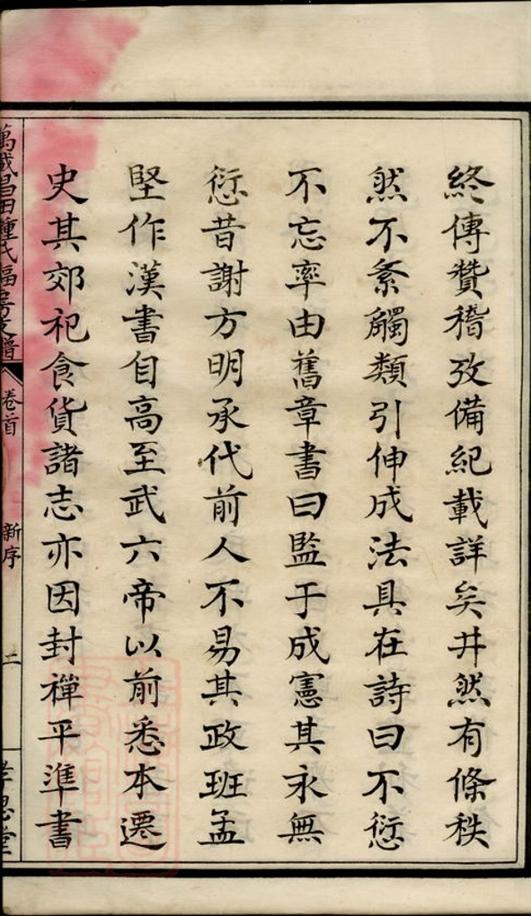 終傳贊稽攷備紀載詳矣井然有條秩
然不紊觸類引伸成法具在詩曰不愆
不忘率由舊章書曰監于成憲其永無
愆昔謝方明承代前人不易其政班孟
堅作漢書自高至武六帝以前悉本遷
史其郊祀食貨諸志亦因封禪平準書
萬載昌田鍾氏福房支譜
卷首
新序
二
孝思堂